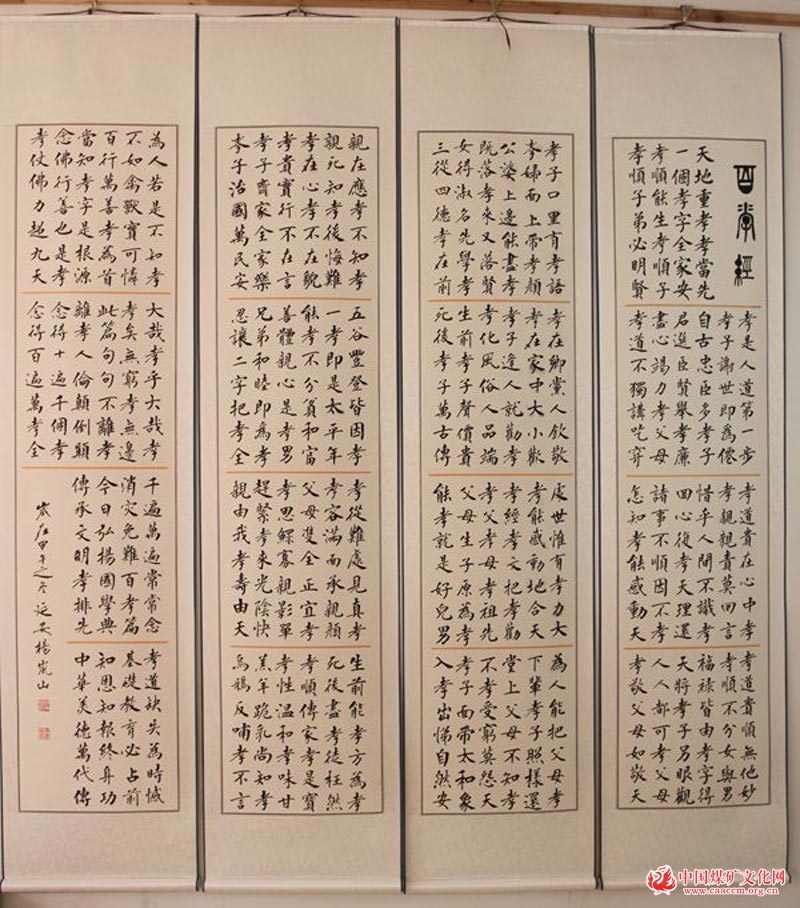 百孝經
天地重孝孝當先
一個孝字全家安
孝順能生孝順子
孝順子弟必明賢
孝是人道第一步
孝子謝世即為僊
自古忠臣多孝子
君選臣賢舉孝廉
盡心竭力孝父母
孝道不獨講吃穿
孝道貴在心中孝
孝親親責莫回言
惜乎人間不識孝
回心復孝天理還
諸事不順因不孝
怎知孝能感動天
孝道貴順無他妙
孝順不分女與男
福祿皆由孝字得
天將孝子另眼觀
人人都可孝父母
孝敬父母如敬天
孝子口里有孝語
孝婦面上帶孝顏
公婆上邊能盡孝
既落孝來又落賢
女得淑名先學孝
三從四德孝在前
孝在鄉黨人欽敬
孝在家中大小歡
孝子逢人就勸孝
孝化風俗人品端
生前孝子聲價貴
死後孝子萬古傳
處世惟有孝力大
孝能感動地合天
孝經孝文把孝勸
孝父孝母孝祖先
父母生子原為孝
能孝就是好兒男
為人能把父母孝
下輩孝子照樣還
堂上父母不知孝
不孝受窮莫怨天
孝子面帶太和象
入孝出悌自然安
親在應孝不知孝
親死知孝後悔難
孝在心孝不在貌
孝貴實行不在言
孝子齊家全家樂
孝子治國萬民安
五谷豐登皆因孝
一孝即是太平年
能孝不分貧和富
善體親心是孝男
兄弟和睦即為孝
忍讓二字把孝全
孝從難處見真孝
孝容滿面承親顏
父母雙全正宜孝
孝思鰥寡親影單
趕緊孝來光陰快
親由我孝壽由天
生前能孝方為孝
死後盡孝徒枉然
孝順傳家孝是寶
孝性溫和孝味甘
羔羊跪乳尚知孝
烏鴉反哺孝不言
為人若是不知孝
不如禽獸實可憐
百行萬善孝為首
當知孝字是根源
念佛行善也是孝
孝仗佛力超九天
大哉孝乎大哉孝
孝矣無窮孝無邊
此篇句句不離孝
離孝人倫顛倒顛
念得十遍千個孝
念得百遍萬孝全
千遍萬遍常常念
消災免難百孝篇
今日弘揚國學典
傳承文明孝排先
孝道缺失為時憾
基礎教育必占前
知恩知報終身功
中華美德萬代傳
歲在甲午之冬延安楊嵐山
中国煤矿文化网
www.caaccm.org.cn